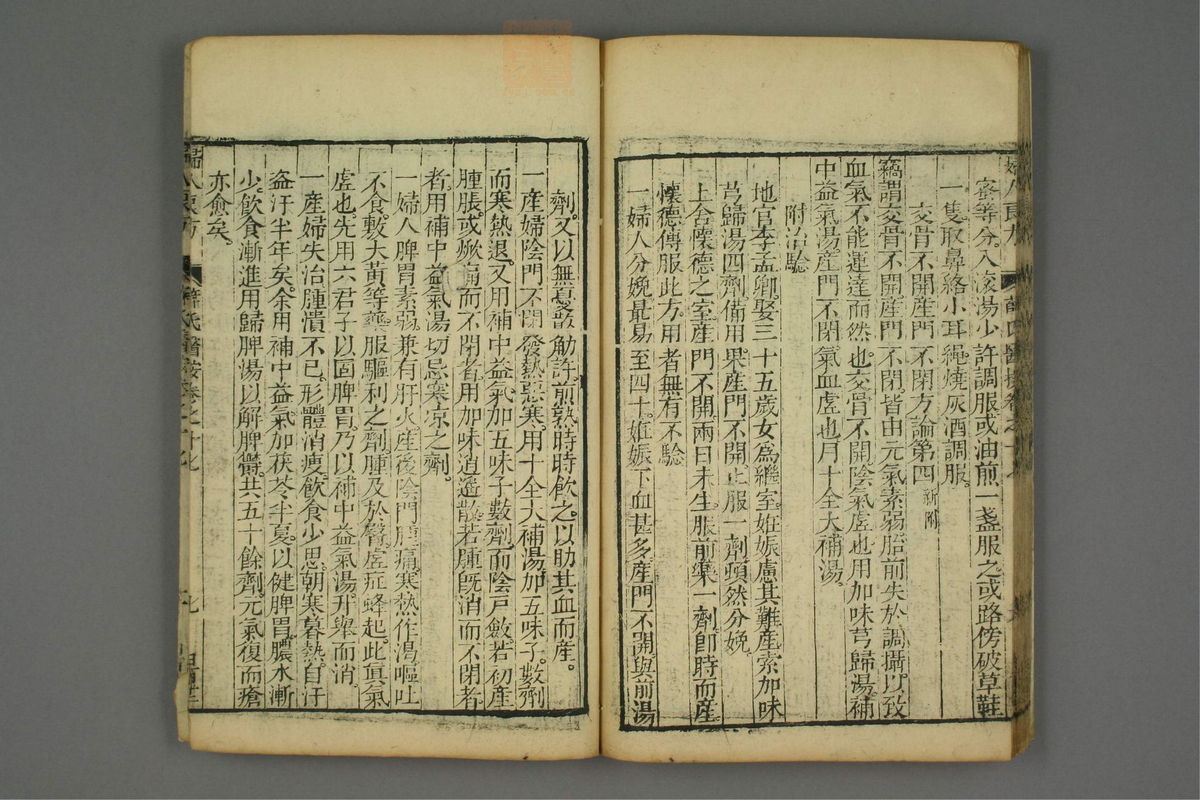 蜜等分入滚湯少許調服或油煎一盞服之或路傍破草鞋
一隻取鼻絡小耳繩燒灰酒調服
交骨不開產門不閉方論第四新附
竊謂交骨不開產門不閉皆由元氣素弱胎前失於調攝以致
血氣不能運達而然也交骨不開陰氣虛也用加味芎歸湯補
中益氣湯產門不閉氣血虛也用十全大補湯
附治驗
地官李孟卿娶三十五歲女為繼室姙娠慮其難產索加味
芎歸湯四劑備用果產門不開止服一劑頃然分娩
上舍懷德之室產門不開兩日未生服前藥一劑即時而產
懷德傳服此方用者無有不驗
一婦人分娩最易至四十姙娠下血甚多產門不開與前湯
劑又以無憂散觔許煎熟時時飲之以助其血而產
一產婦陰門不閉發熱惡寒用十全大補湯加五味子數劑
而寒熱退又用補中益氣加五味子數劑而陰戶斂若初產
腫脹或焮痛而不閉者用加味逍遙散若腫既消而不閉者
者用補中益氣湯切忌寒凉之劑
一婦人脾胃素弱兼有肝火產後陰門腫痛寒熱作渴嘔吐
不食敷大黃等藥服驅利之劑腫及於臀虛症蜂起此真氣
虛也先用六君子以固脾胃乃以補中益氣湯升舉而消
一產婦失治腫潰不已形體消瘦飲食少思朝寒暮熱自汗
盜汗半年矣余用補中益氣加茯苓半夏以健脾胃膿水漸
少飲食漸進用歸脾湯以解脾鬱共五十餘劑元氣復而瘡
亦愈矣
婦人良方
薛氏醫按卷之十七